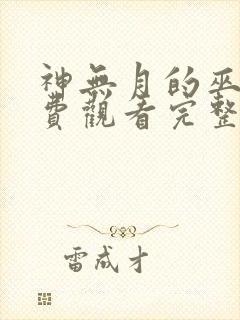 神無月的巫
費觀看完整
雷成才